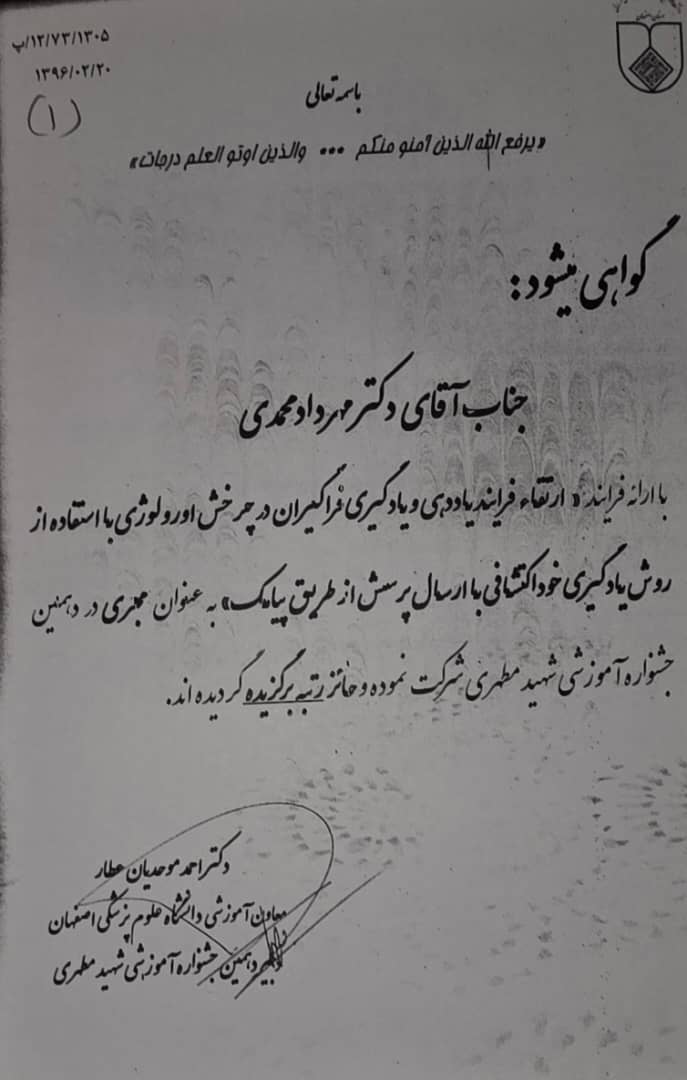 ۱۲/۷۳/۱۳۰۵/پ
۱۳۹۶/۰۲/۲۰
(۱)
باسمه تعالی
«یرفع الله الذین آمنو منکم ... والذین اوتو العلم درجات»
گواهی میشود:
جناب آقای دکتر مهرداد محمدی
با ارائه فرایند « ارتقاء فرایند یاددهی و یادگیری فراگیران در چرخش اورولوژی با استفاده از
روش یادگیری خود اکتشافی با ارسال پرسش از طریق پیامک» به عنوان مجری در دهمین
جشنواره آموزشی شهید مطهری شرکت نموده و حائز رتبه برگزیده گردیده اند.
دکتر احمد موحدیان عطار
معاون آموزشی دانشگاه علوم پزشکی اصفهان
دبیر دهمین جشنواره آموزشی شهید مطهری